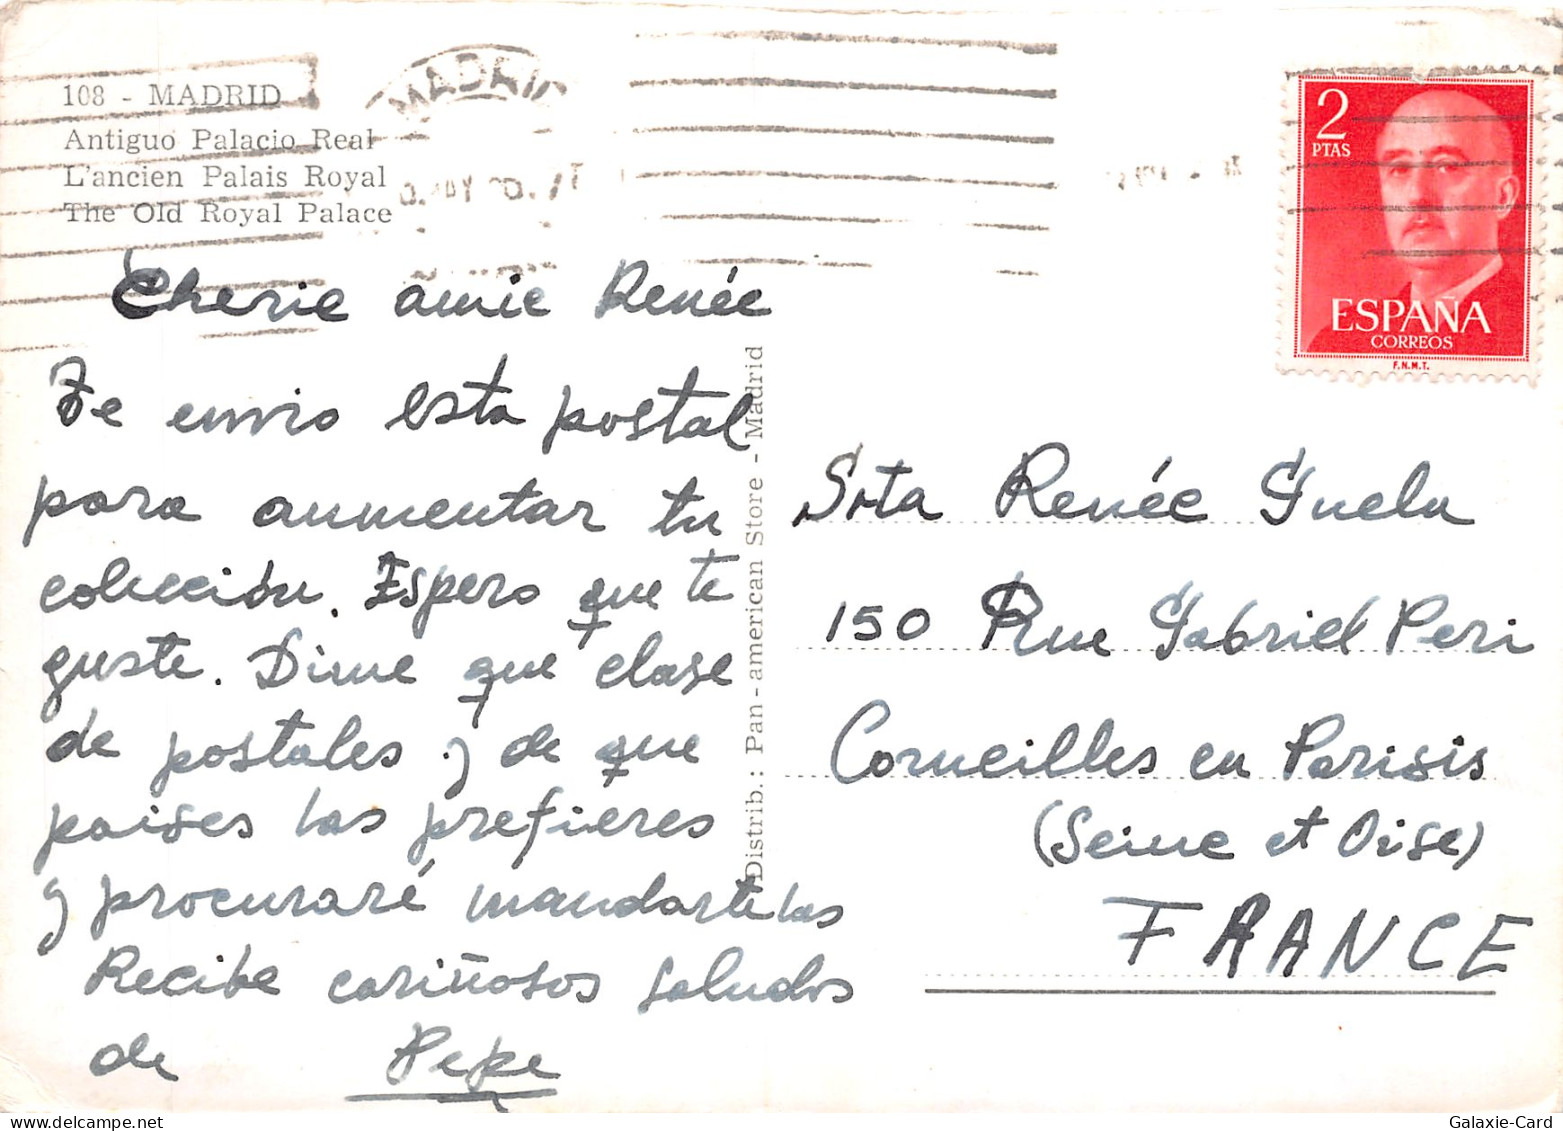 108 - MADRID
Antiguo Palacio Real
L'ancien Palais Royal
The Old Royal Palace
MADRID
Cherie amie Renée
Te envio esta postal
para aumentar tu
colección. Espero que te
guste. Dime que clase
de postales y de que
paises las prefieres
y procuraré mandartelas
Recibe cariñosos saludos
de Pepe
Distrib.: Pan-american Store - Madrid
2
PTAS
ESPAÑA
CORREOS
F.N.M.T.
Srta Renée Guelu
150 Rue Gabriel Peri
Corneilles en Parisis
(Seine et Oise)
FRANCE
Galaxie-Card